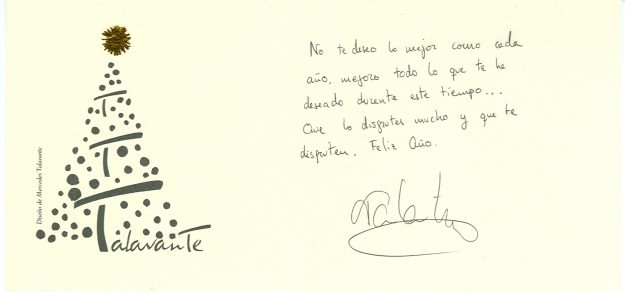 No te deseo lo mejor como cada
año, mejoro todo lo que te he
deseado durante este tiempo...
Que lo disfrutes mucho y que te
disfruten. Feliz Año.
Diseño de Mercedes Talavante
Talavante